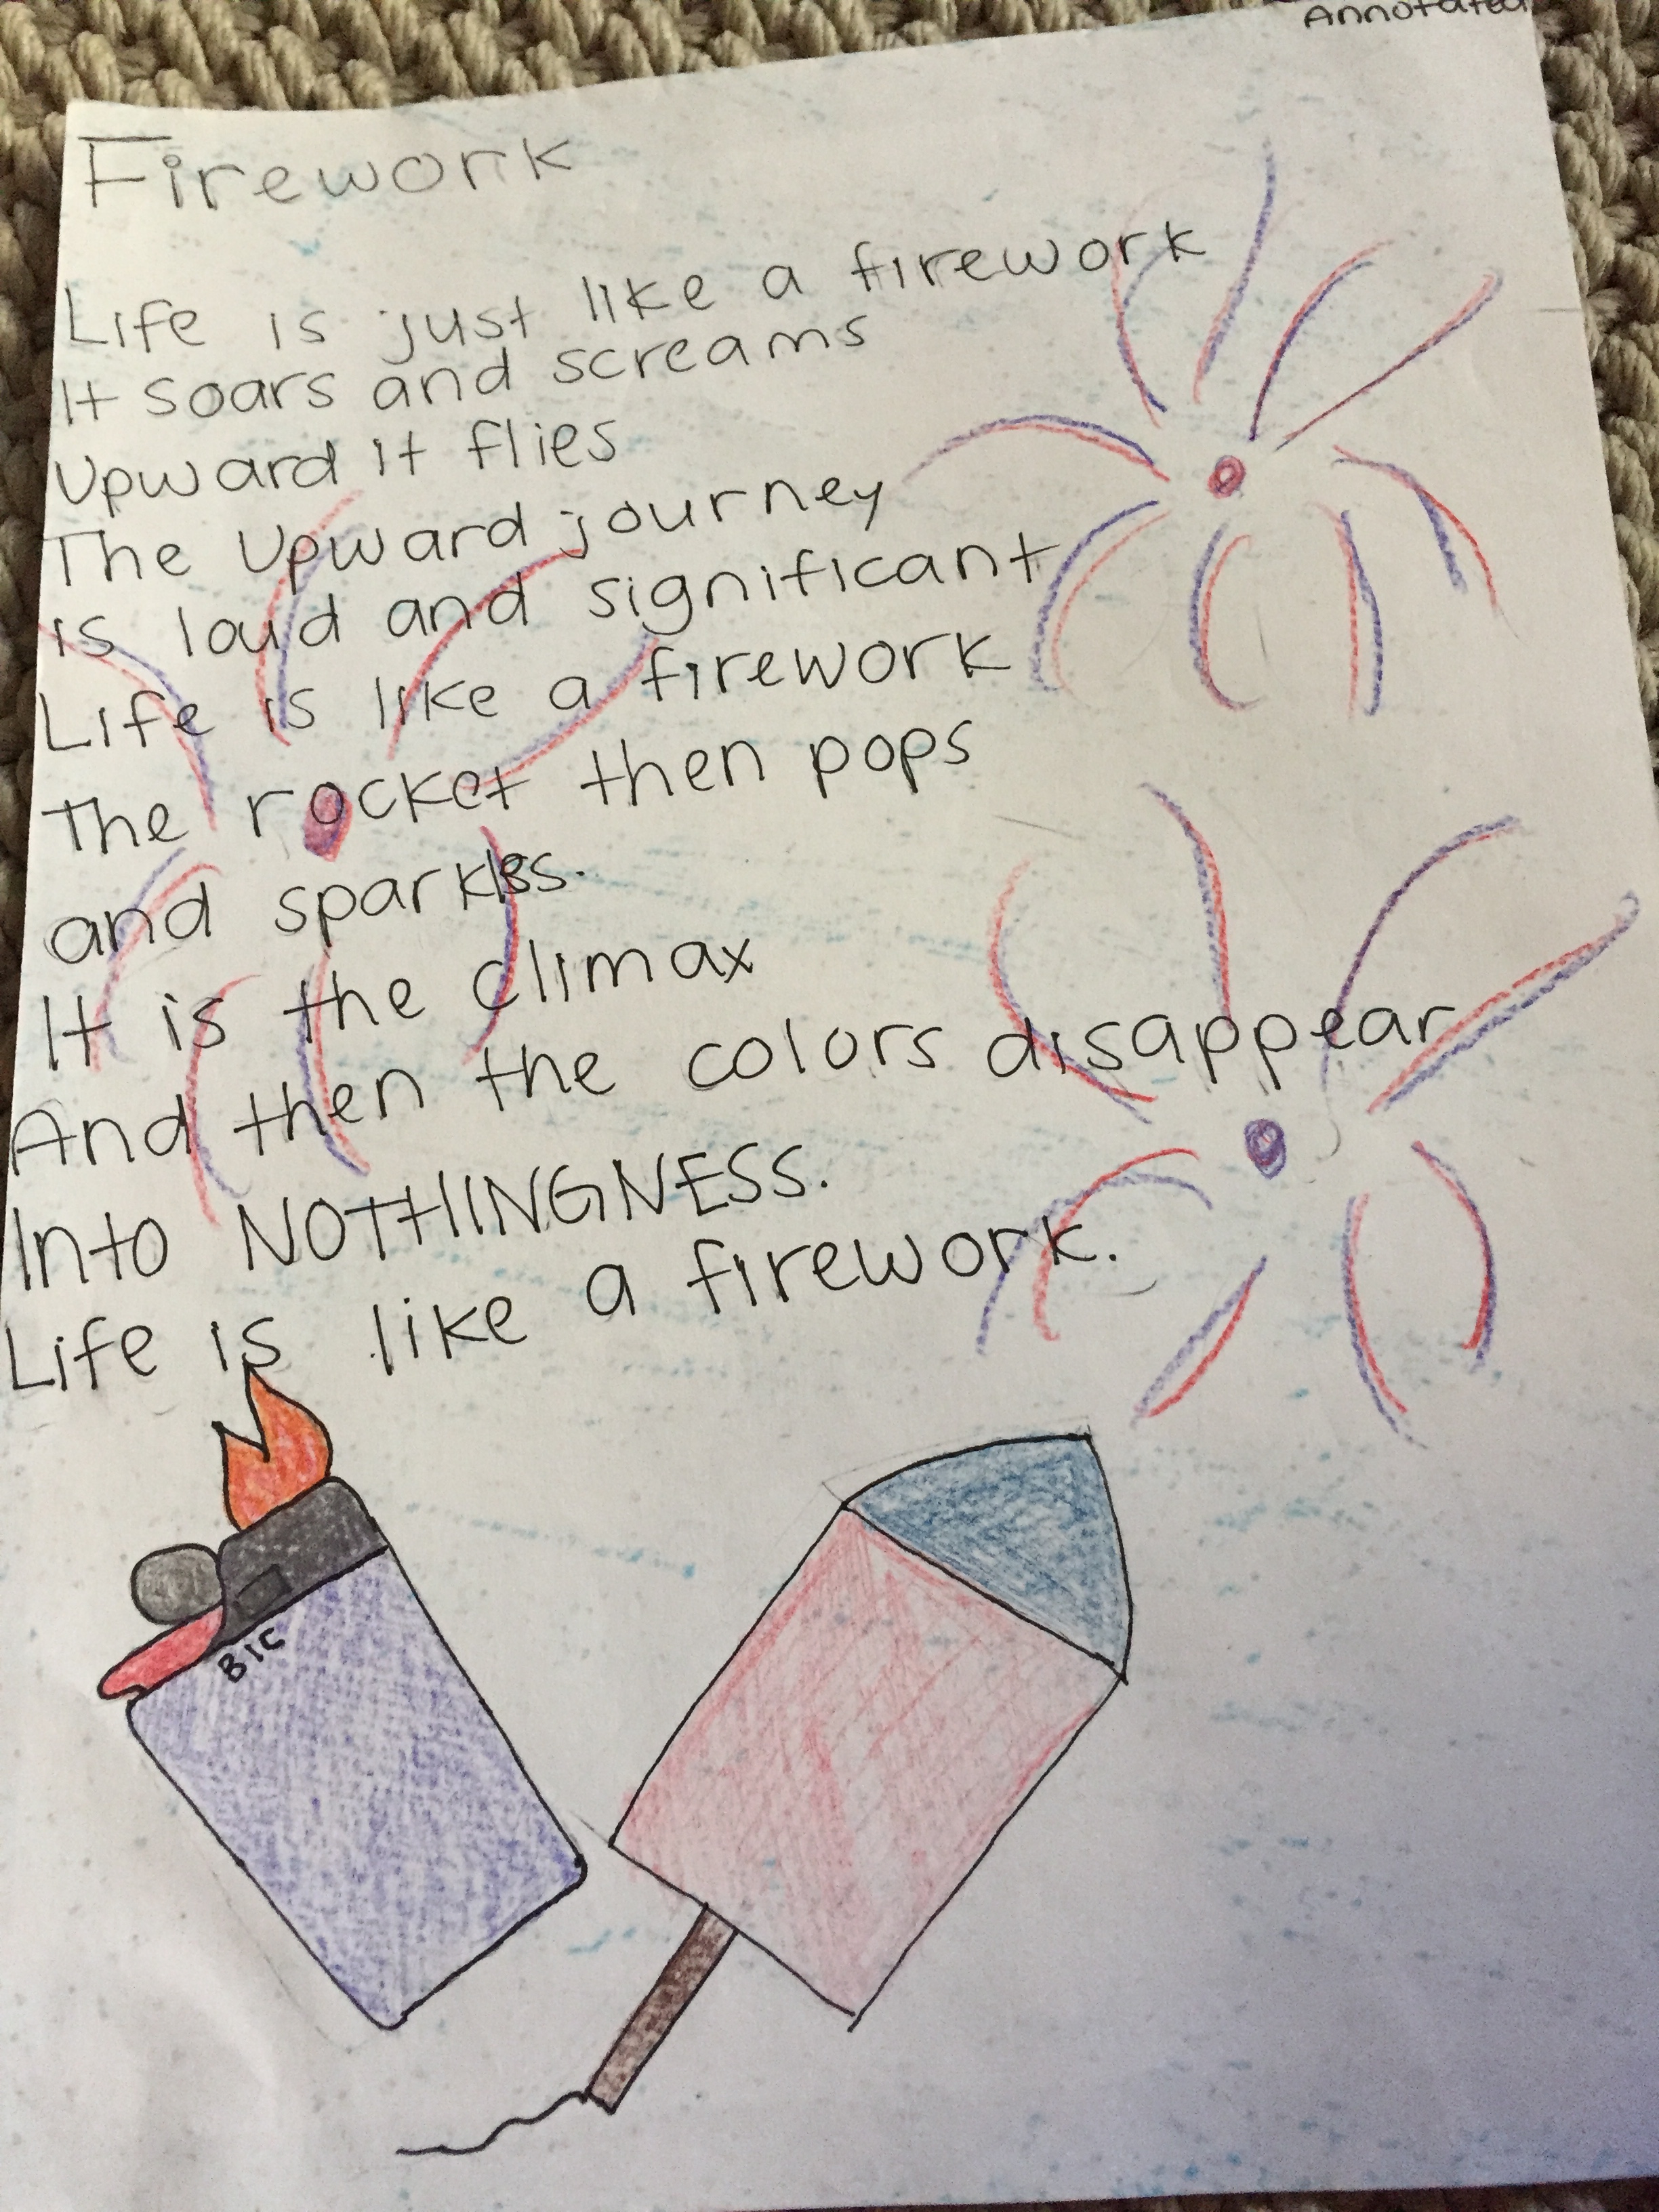 Annotated
Firework
Life is just like a firework
It soars and screams
Upward it flies
The Upward journey
is loud and significant
Life is like a firework
The rocket then pops
and sparkles.
It is the climax
And then the colors disappear
Into NOTHINGNESS.
Life is like a firework.
BIC